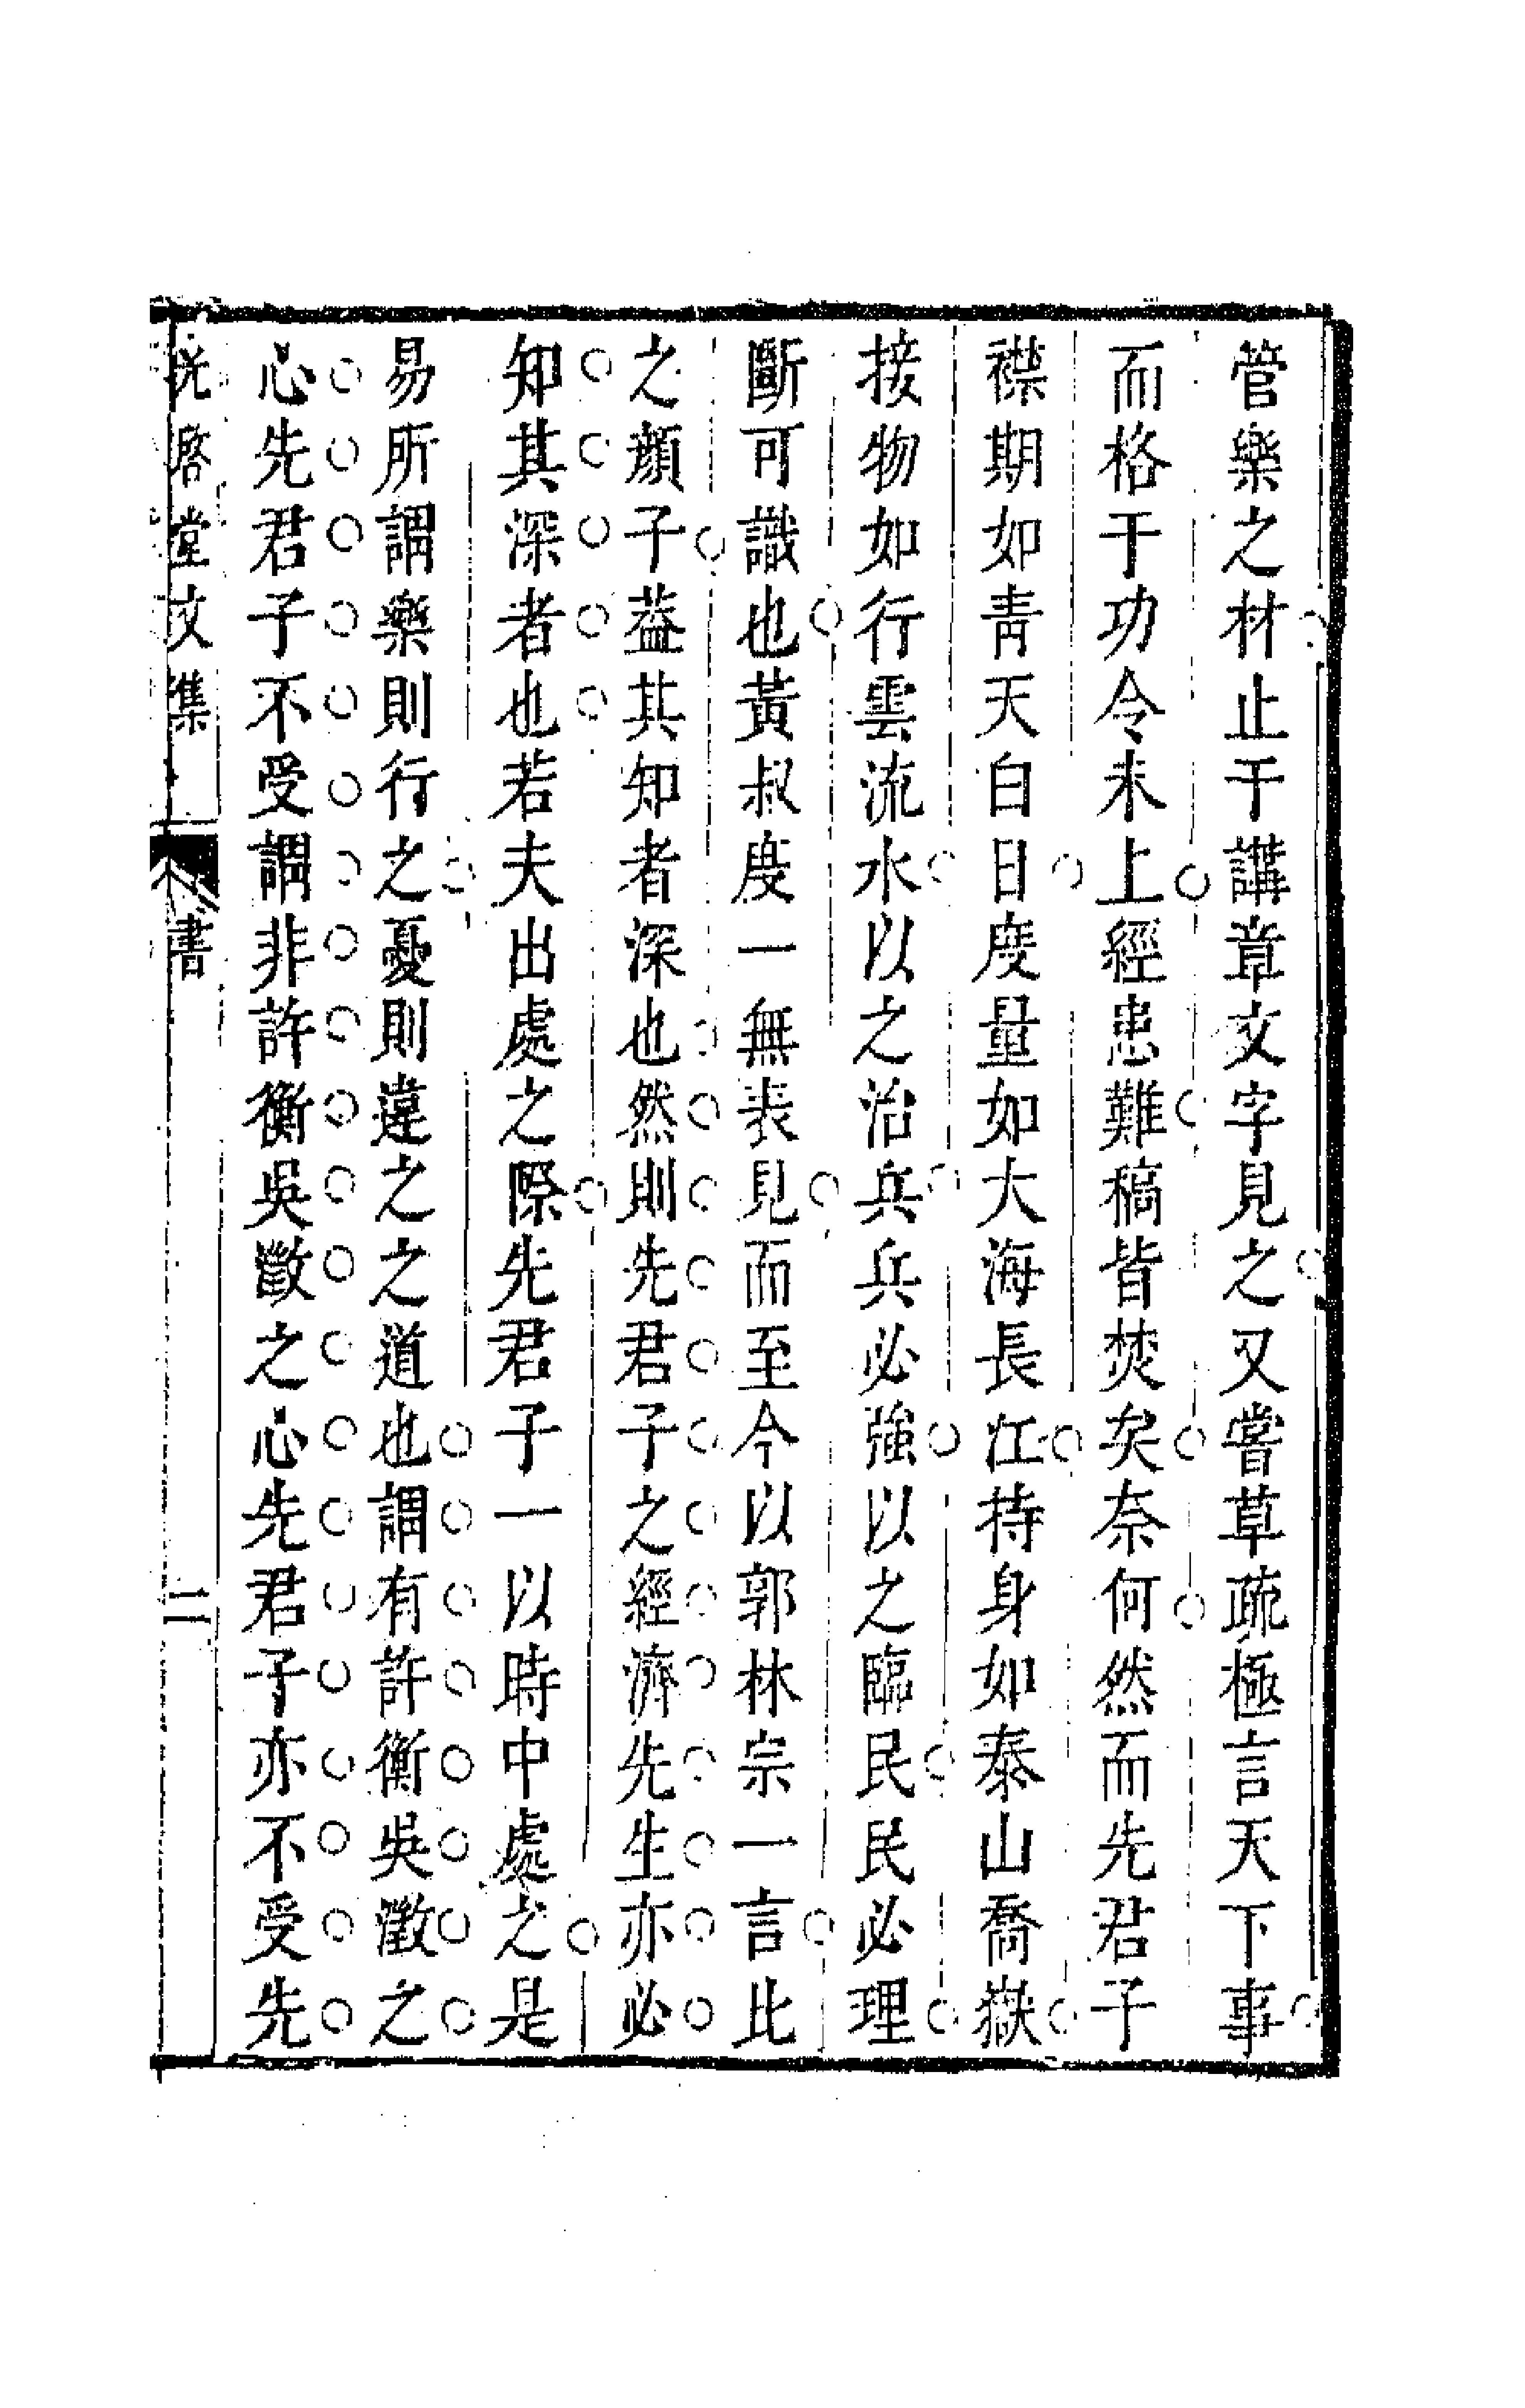 管樂之材止于講章文字見之又嘗草疏極言天下事
而格于功令未上經患難稿皆焚矣奈何然而先君子
襟期如靑天白日度量如大海長江持身如泰山喬嶽
接物如行雲流水以之治兵兵必強以之臨民民必理
斷可識也黃叔度一無表見而至今以郭林宗一言比
之顔子葢其知者深也然則先君子之經濟先生亦必
知其深者也若夫出處之際先君子一以時中處之是
易所謂樂則行之憂則違之之道也謂有許衡吳澂之
心先君子不受謂非許衡吳澂之心先君子亦不受先
堂文集
書
二